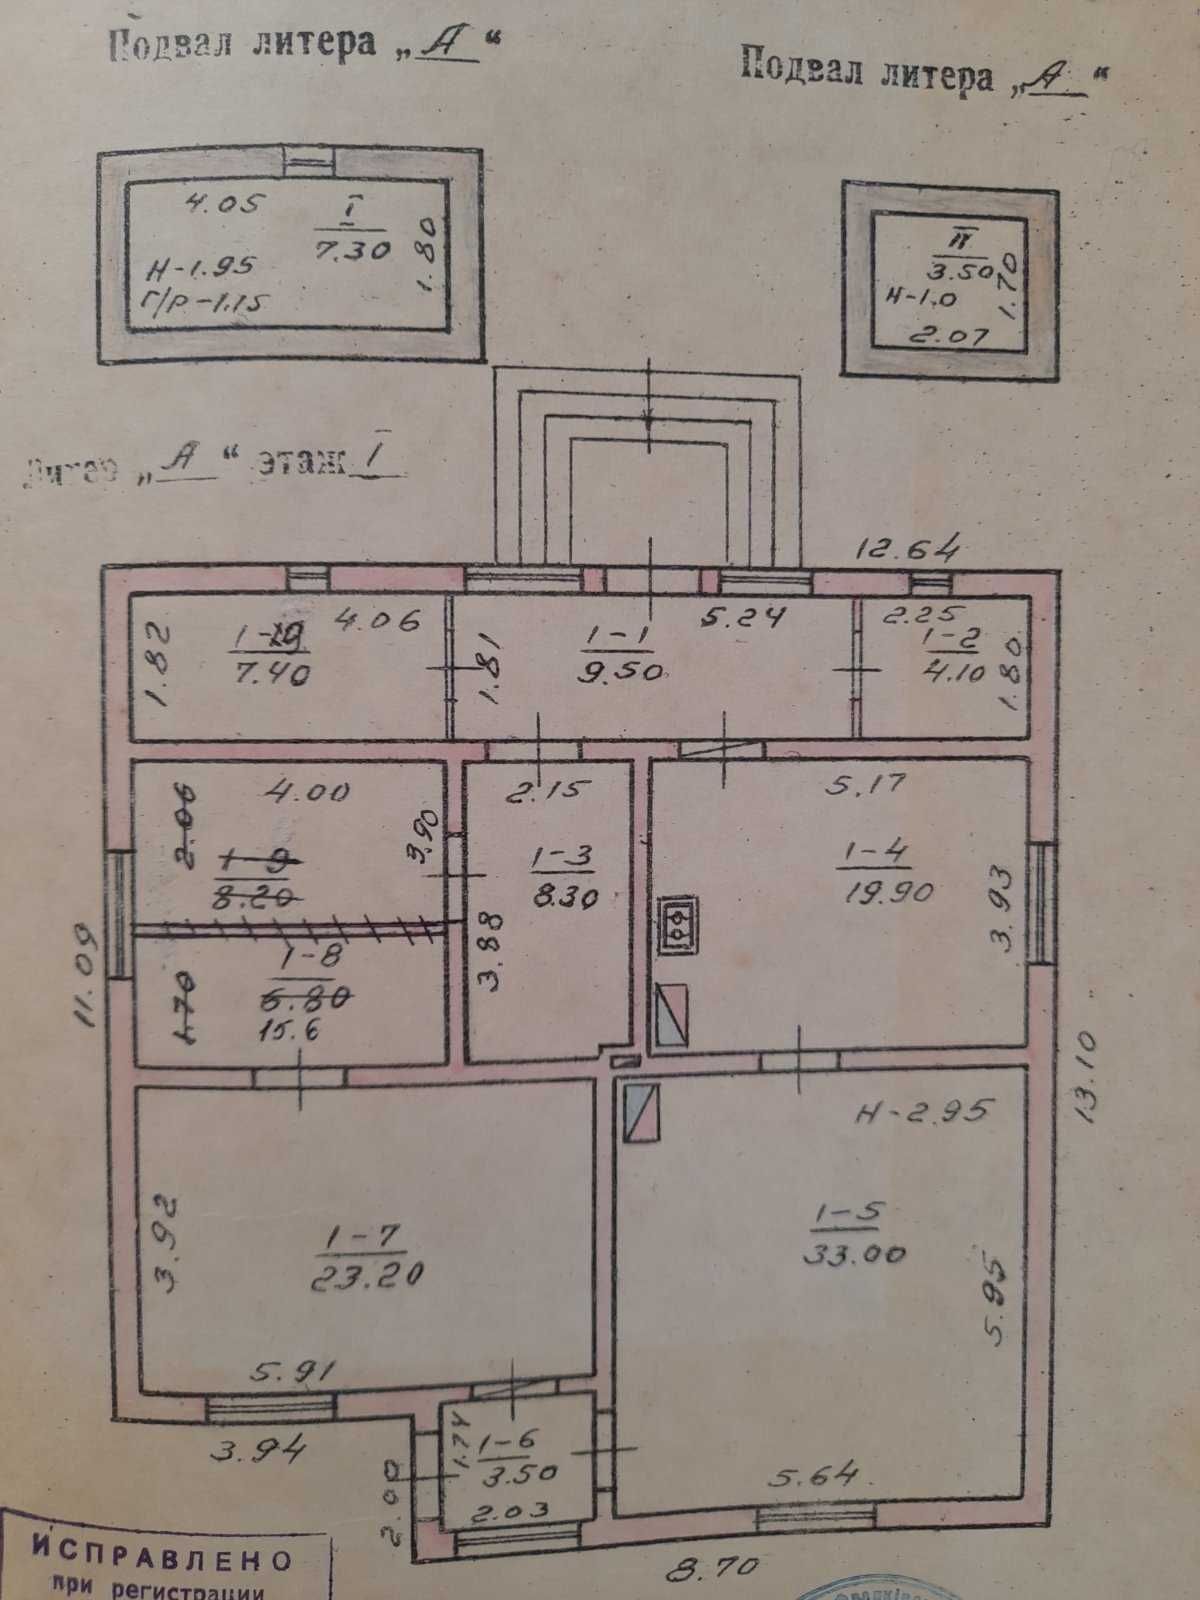 Подвал литера „А“
Подвал литера „А“
4.05
I
7.30
1.80
Н-1.95
Г/Р-1.15
II
3.50
1.70
Н-1.0
2.07
Литер „А“ этаж I
12.64
1.82
7.40
4.06
1.81
1-1
9.50
5.24
2.25
1-2
4.10
1.80
2.06
4.00
3.90
1-9
8.20
2.15
1-3
8.30
3.88
5.17
1-4
19.90
3.93
11.09
1.70
1-8
6.80
15.6
13.10
Н-2.95
3.92
1-7
23.20
5.91
1-5
33.00
5.95
3.94
2.00
1.74
1-6
3.50
2.03
5.64
8.70
ИСПРАВЛЕНО
при регистрации